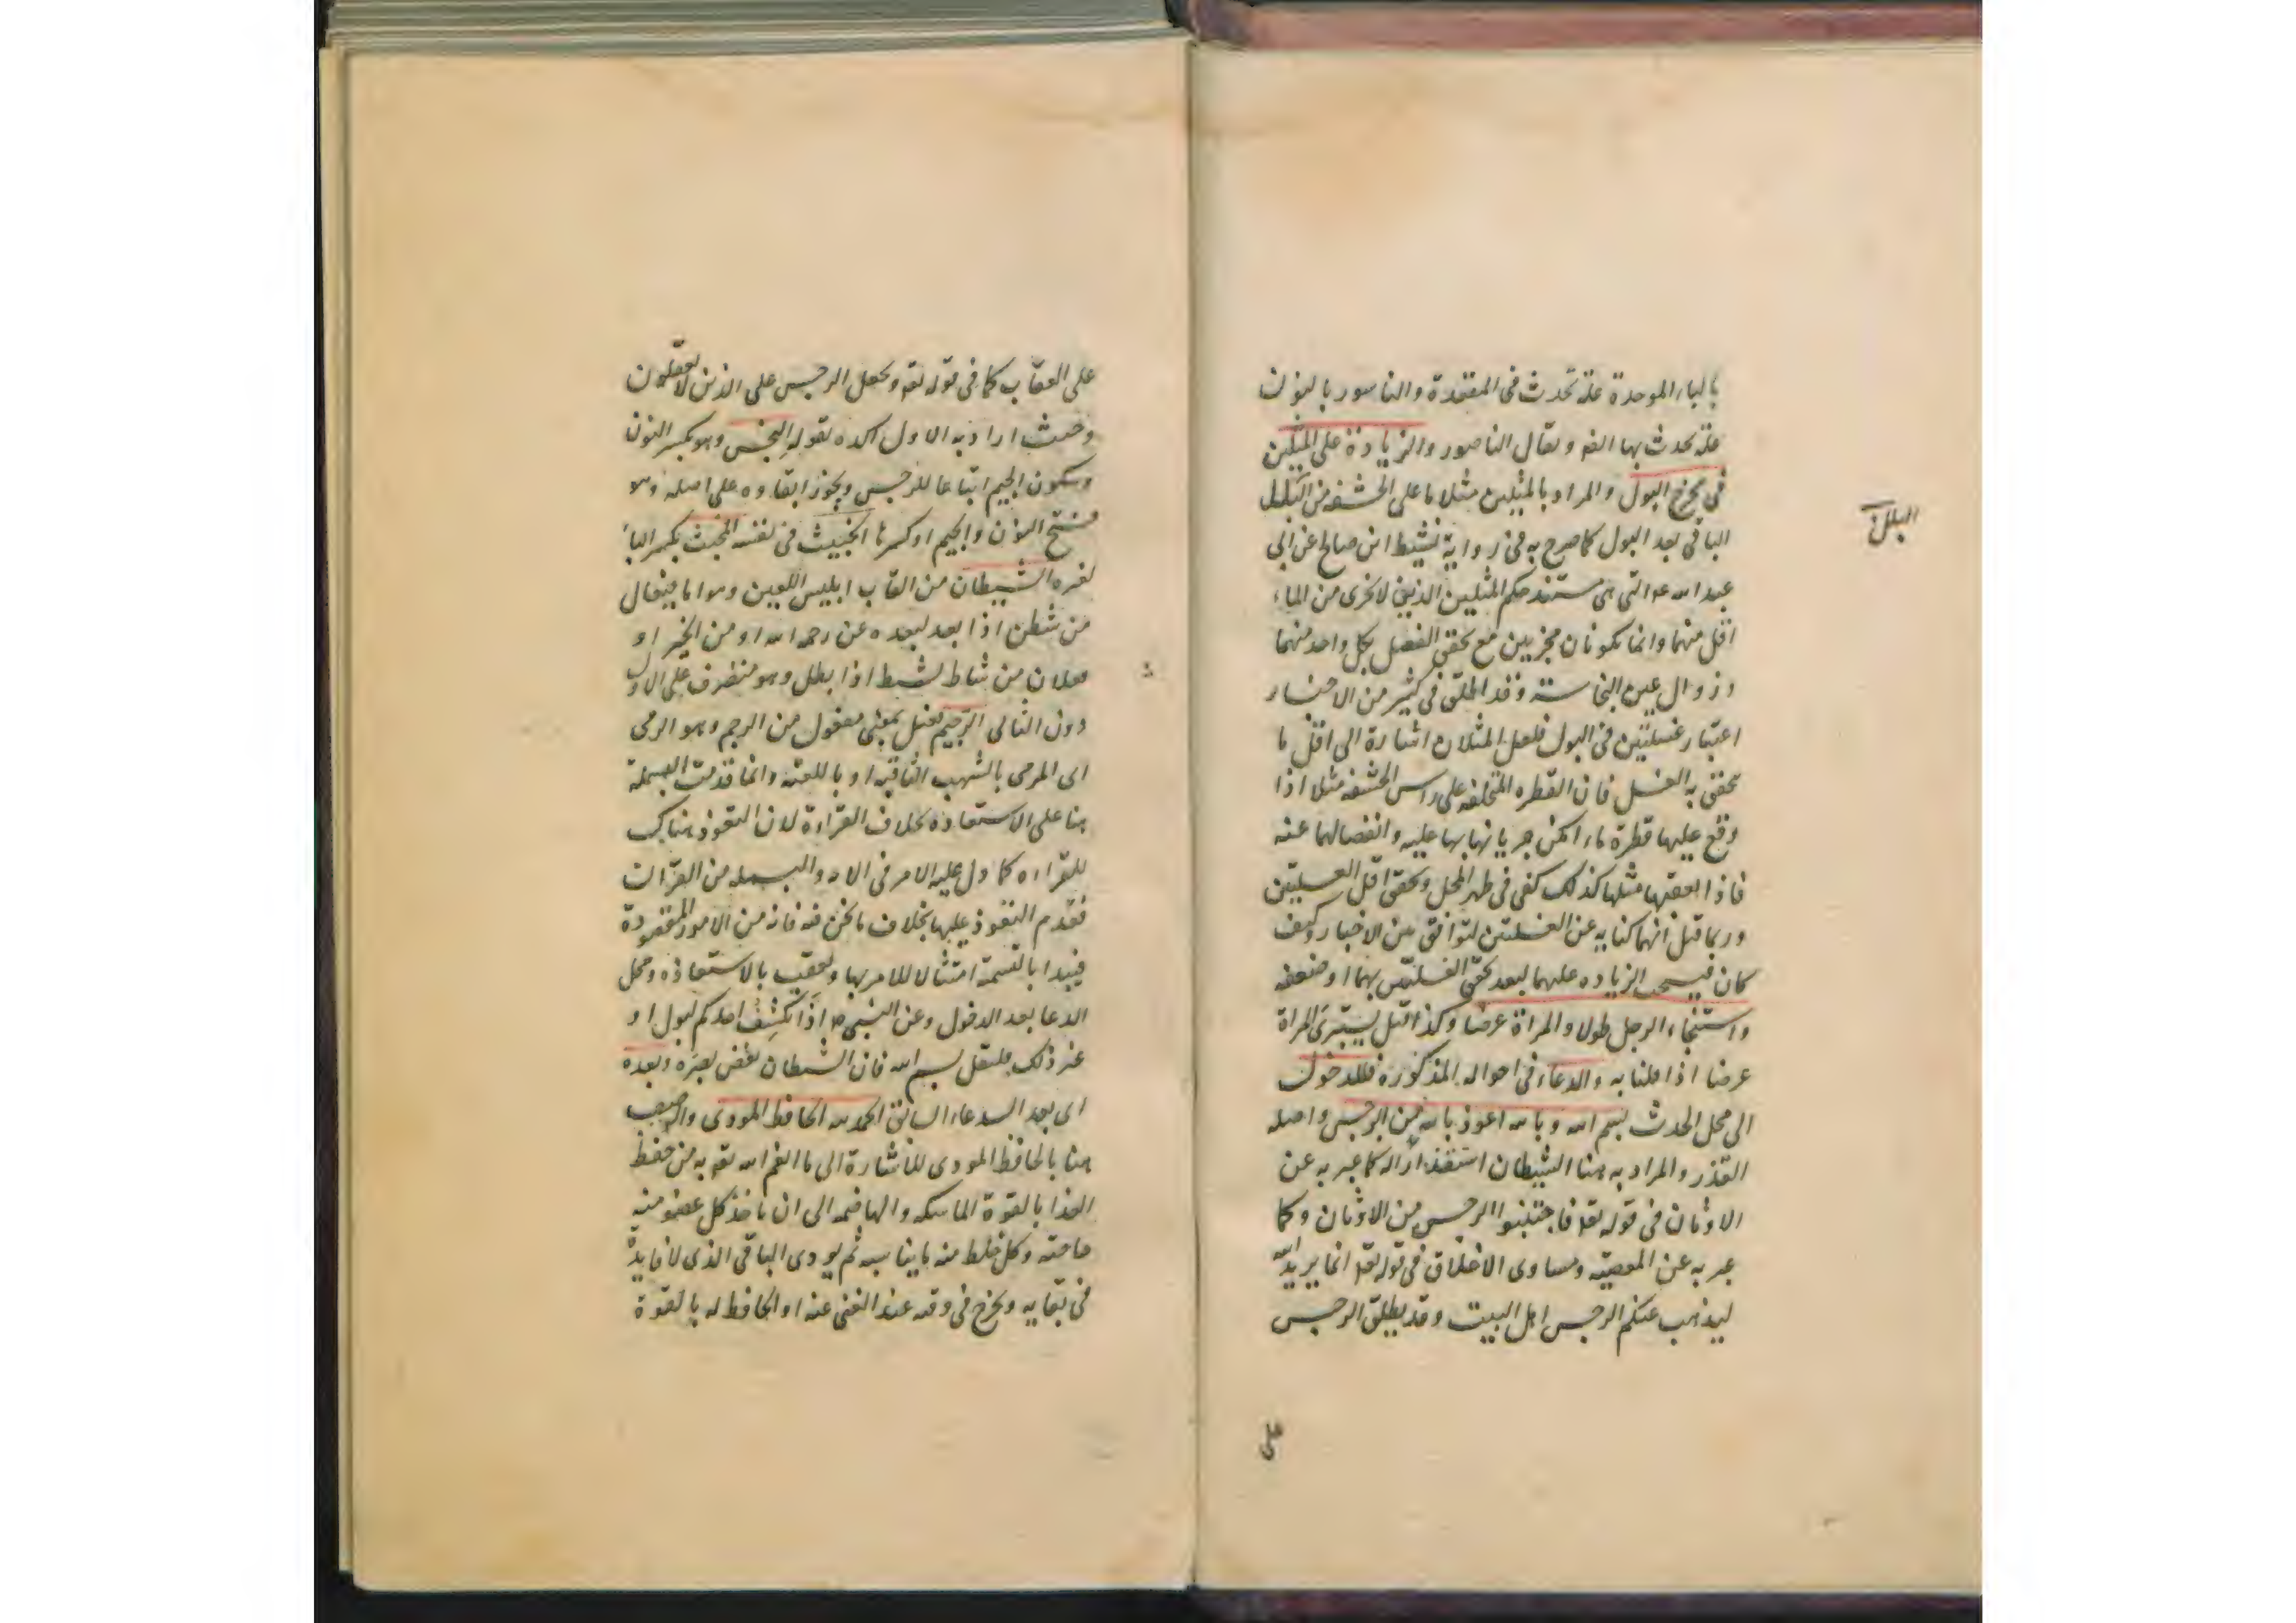 بالباء الموحدة علة تحدث فى المقعدة والناسور بالنون
علة تحدث بها ايضا ويقال الناصور والزيادة على المثلين
فى مخرج البول والمراد بالمثلين مثلا ما على الحشفه من البلل
البلل
الباقى بعد البول كما صرح به فى رواية نشيط ابن صالح عن ابى
عبد الله ع التى هى مستند حكم المثلين الذين لا يجزى من الماء
اقل منهما وانما يكونان مجزيين مع تحقق الفصل بكل واحد منهما
وزوال عين النجاسة وقد اطلق فى كثير من الاخبار
اعتبار غسلتين فى البول فلعل المثلان اشارة الى اقل ما
تحقق به الغسل فان القطره المتخلفه على راس الحشفه مثلا اذا
وقع عليها قطرة ماء امكن جريانها بها عليه وانفصالهما عنه
فاذا اعقبها مثلها كذلك كفى فى طهر المحل وتحقق اقل الغسلتين
وربما قيل انهما كنايه عن الغسلتين لتوافق بين الاخبار وكيف
كان فيستحب الزياده عليهما ليعد تحقق الغسلتين بهما او ضعفه
واستنجاء الرجل طولا والمراة عرضا وكذا قيل يستبرئ المراة
عرضا اذا قلنا به والدعاء فى احواله المذكورة فللدخول
الى محل الحدث بسم الله وبالله اعوذ بالله من الرجس واصله
القذر والمراد به هنا الشيطان استقذارا له كما عبر به عن
الاوثان فى قوله تعه فاجتنبوا الرجس من الاوثان وكما
عبر به عن المعصيه ومساوى الاخلاق فى قوله تعه انما يريد الله
ليذهب عنكم الرجس اهل البيت وقد يطلق الرجس
على
على العقاب كما فى قوله تعه ويجعل الرجس على الذين لا يعقلون
وحيث اراد به الاول اكده بقوله النجس وهو بكسر النون
وسكون الجيم اتباعا للرجس ويجوز ابقاوه على اصله وهو
فتح النون والجيم او كسرها الخبيث فى نفسه المخبث بكسر الباء
لغيره الشيطان من القاب ابليس اللعين وهو اما فيعال
من شطن اذا بعد لبعده عن رحمه الله او من الخير او
فعلان من شاط يشيط اذا بطل وهو منصرف على الاول
دون الثانى الرجيم فعيل بمعنى مفعول من الرجم وهو الرمى
اى المرمى بالشهب الثاقبه او باللعنه وانما قدمت البسملة
هنا على الاستعاذه بخلاف القراءة لان التعوذ هناك
للقراءه كما دل عليه الامر فى الايه والبسمله من القرات
فقدم التعوذ عليها بخلاف ما نحن فيه فانه من الامور المقصودة
فيبدا بالتسمية امتثالا للامر بها ويعقب بالاستعاذه ومحل
الدعا بعد الدخول وعن النبى ص اذا انكشف احدكم لبول او
غير ذلك فليقل بسم الله فان الشيطان يغض بصره وبعده
اى بعد الدعاء السابق الحمد لله الحافظ المودى
هنا بالحافظ المودى للاشارة الى ما انعم الله تعه به من حفظ
الغذا بالقوة الماسكه والهاضمه الى ان ياخذ كل عضو منه
حاجته وكل خلط منه ما يناسبه ثم يودى الباقى الذى لا فايدة
فى بقايه ويخرج فى وقته عند الغنى عنه او الحافظ له بالقوة